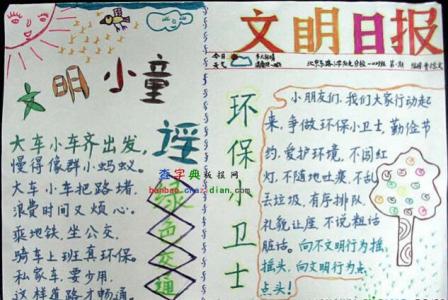 文明小童谣
大车小车齐出发，
慢得像群小蚂蚁。
大车小车把路堵，
浪费时间又烦心。
乘地铁、坐公交，
骑车上班真环保。
私家车，要少用，
这样道路才畅通。
绿色交通
查字典板报网
banbao.chazidian.com
文明日报
今日
天气
环保小卫士
小朋友们，我们大家行动起
来，争做环保小卫士，勤俭节
约，爱护环境，不闯红
灯，不随地吐痰，不乱
丢垃圾，有序排队，
礼貌让座，不说粗话
脏话。向不文明行为摇
摇头，向文明行为点
点头！